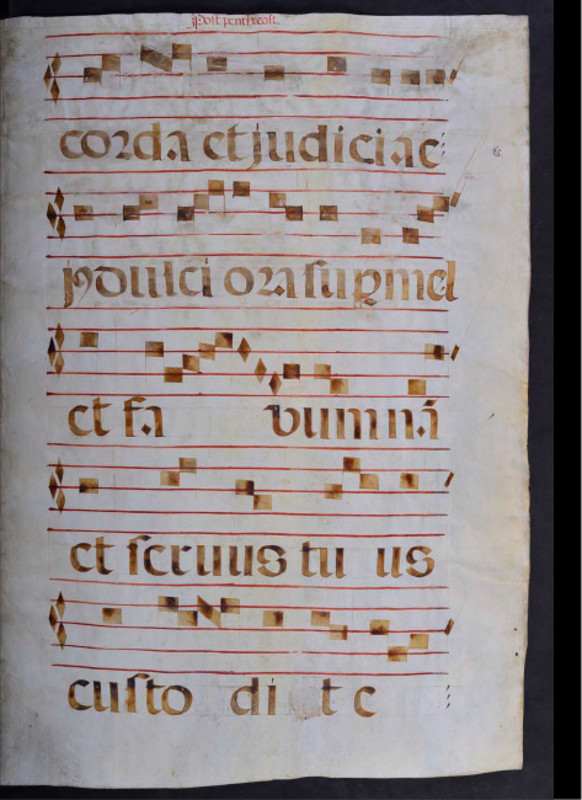 Post pentecost.
corda et judici a e
ꝯ dulci ora suꝑ mel
et fa vum nā
et servus tu us
custo di t e